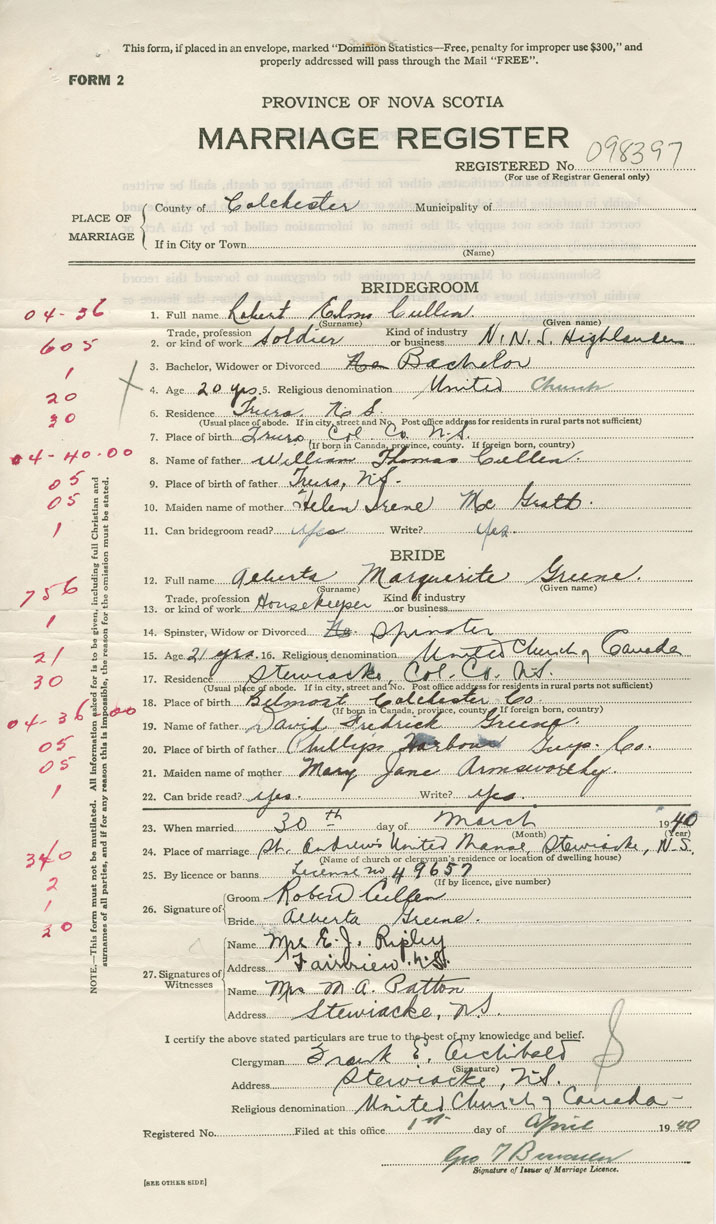 This form, if placed in an envelope, marked "Dominion Statistics—Free, penalty for improper use $300," and
properly addressed will pass through the Mail "FREE".
FORM 2
PROVINCE OF NOVA SCOTIA
MARRIAGE REGISTER
REGISTERED No. 098397
(For use of Registrar General only)
PLACE OF MARRIAGE
County of Colchester Municipality of
If in City or Town
(Name)
BRIDEGROOM
04-36
1. Full name Robert Cullen
(Surname) (Given name)
605
2. Trade, profession or kind of work Soldier Kind of industry or business N.N.S. Highlanders
1
3. Bachelor, Widower or Divorced Bachelor
20
4. Age 20 yrs. 5. Religious denomination United Church
30
6. Residence Truro N.S.
(Usual place of abode. If in city, street and No. Post office address for residents in rural parts not sufficient)
7. Place of birth Truro Col. Co. N.S.
(If born in Canada, province, county. If foreign born, country)
04-40-00
8. Name of father William Thomas Cullen.
05
9. Place of birth of father Truro, N.S.
05
10. Maiden name of mother Helen Irene Mc Grath.
1
11. Can bridegroom read? yes Write? yes.
BRIDE
12. Full name Alberta Marguerite Greene.
(Surname) (Given name)
756
13. Trade, profession or kind of work Housekeeper Kind of industry or business
1
14. Spinster, Widow or Divorced Spinster
21
15. Age 21 yrs. 16. Religious denomination United Church of Canada
30
17. Residence Stewiacke, Col. Co. N.S.
(Usual place of abode. If in city, street and No. Post office address for residents in rural parts not sufficient)
18. Place of birth Belmont Colchester Co.
(If born in Canada, province, county If foreign born, country)
04-36-00
19. Name of father David Fredrick Greene.
05
20. Place of birth of father Phillips Harbour Guys. Co.
05
21. Maiden name of mother Mary Jane Armsworthy.
1
22. Can bride read? yes. Write? yes.
23. When married 30th day of March 1940
(Month) (Year)
340
24. Place of marriage St. Andrew's United Manse, Stewiacke, N.S.
(Name of church or clergyman's residence or location of dwelling house)
2
25. By licence or banns License no 49657
(If by licence, give number)
1
26. Signature of
Groom Robert Cullen
20
Bride Alberta Greene.
27. Signatures of Witnesses
Name Mrs E. J. Ripley
Address Fairview N.S.
Name Mrs M. A. Patton
Address Stewiacke, N.S.
I certify the above stated particulars are true to the best of my knowledge and belief.
Clergyman Frank E. Archibald
(Signature)
Address Stewiacke, N.S.
Religious denomination United Church of Canada
Registered No. Filed at this office 1st day of April 1940
Geo T
Signature of Issuer of Marriage Licence.
[SEE OTHER SIDE]
NOTE.—This form must not be mutilated. All information asked for is to be given, including full Christian and
surnames of all parties, and if for any reason this is impossible, the reason for the omission must be stated.